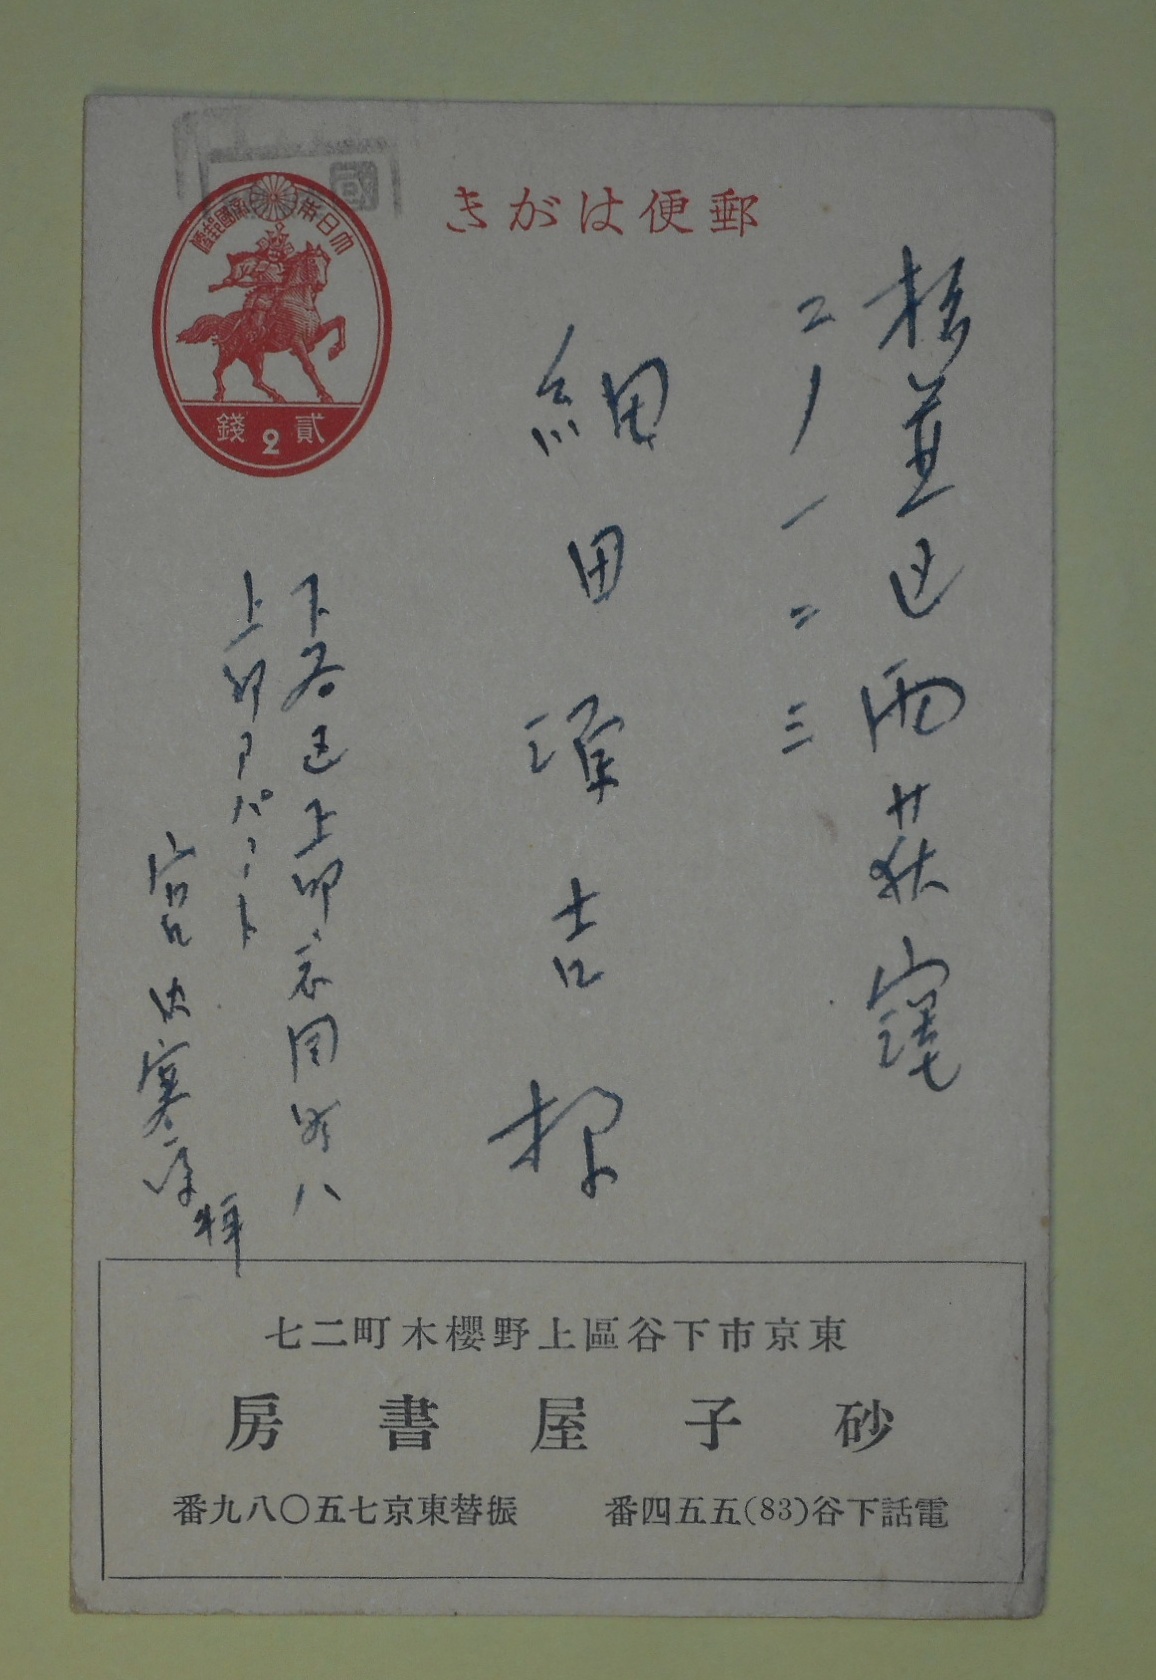 郵便はがき
大日本帝國郵便
貳2錢
國
杉並区西荻窪
二ノ一二三
細田源吉様
下谷区上野桜木町八
上野アパート
宮内寒弥
拝
東京市下谷區上野櫻木町二七
砂子屋書房
電話下谷(83)五五四番 振替東京七五〇八九番